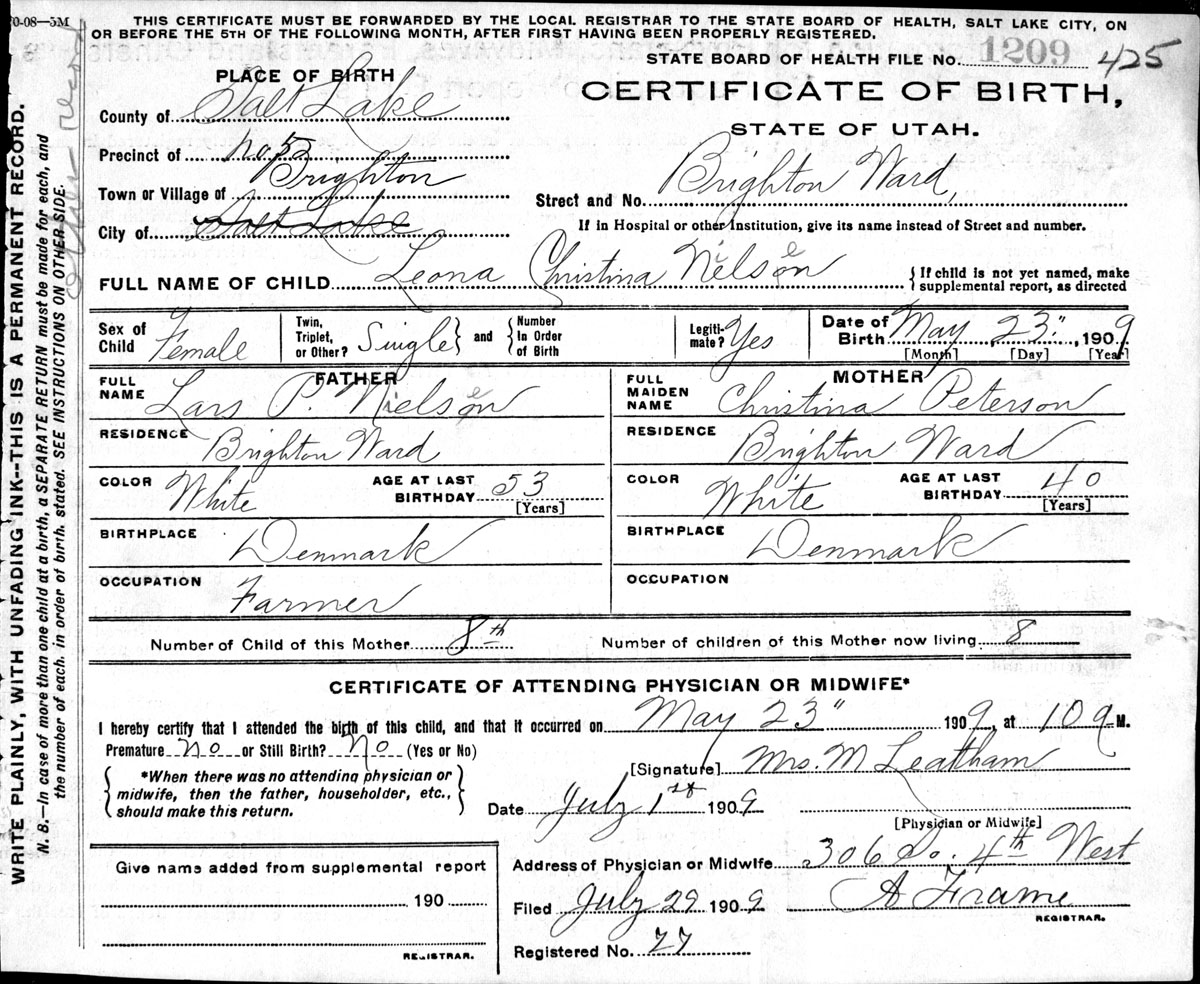 0-08—5M
THIS CERTIFICATE MUST BE FORWARDED BY THE LOCAL REGISTRAR TO THE STATE BOARD OF HEALTH, SALT LAKE CITY, ON
OR BEFORE THE 5TH OF THE FOLLOWING MONTH, AFTER FIRST HAVING BEEN PROPERLY REGISTERED.
STATE BOARD OF HEALTH FILE No. 1209 425
PLACE OF BIRTH
CERTIFICATE OF BIRTH,
STATE OF UTAH.
County of Salt Lake
Precinct of No 52
Town or Village of Brighton
City of Salt Lake
Street and No. Brighton Ward,
If in Hospital or other Institution, give its name instead of Street and number.
FULL NAME OF CHILD Leona Christina Nielsen
{If child is not yet named, make
supplemental report, as directed
Sex of Child Female
Twin, Triplet, or Other? Single } and { Number In Order of Birth
Legiti-mate? Yes
Date of Birth May 23", 1909
[Month] [Day] [Year]
FATHER
FULL NAME Lars P. Nielsen
RESIDENCE Brighton Ward
COLOR White AGE AT LAST BIRTHDAY 53 [Years]
BIRTHPLACE Denmark
OCCUPATION Farmer
MOTHER
FULL MAIDEN NAME Christina Peterson
RESIDENCE Brighton Ward
COLOR White AGE AT LAST BIRTHDAY 40 [Years]
BIRTHPLACE Denmark
OCCUPATION
Number of Child of this Mother 8th Number of children of this Mother now living 8
CERTIFICATE OF ATTENDING PHYSICIAN OR MIDWIFE*
I hereby certify that I attended the birth of this child, and that it occurred on May 23" 1909, at 10 a M.
Premature No or Still Birth? No (Yes or No)
{*When there was no attending physician or
midwife, then the father, householder, etc.,
should make this return.}
[Signature] Mrs. M Leatham
Date July 1st 1909
[Physician or Midwife]
Address of Physician or Midwife 306 So. 4th West
Filed July 29 1909 A Frame
REGISTRAR.
Registered No. 77
Give name added from supplemental report
190
REGISTRAR.
WRITE PLAINLY, WITH UNFADING INK--THIS IS A PERMANENT RECORD.
N. B.—In case of more than one child at a birth, a SEPARATE RETURN must be made for each, and
the number of each, in order of birth, stated. SEE INSTRUCTIONS ON OTHER SIDE.